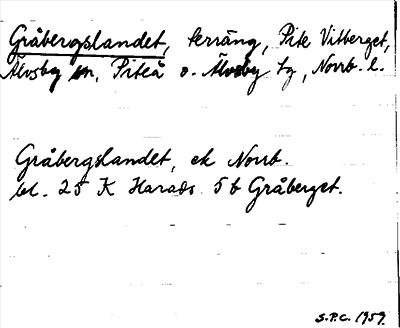 Gråbergslandet, terräng, Pite Vitberget,
Älvsby sn, Piteå o. Älvsby tg, Norrb. l.
Gråbergslandet, ek Norrb.
bl. 25 K Harads 5b Gråberget.
S.P.C. 1959.